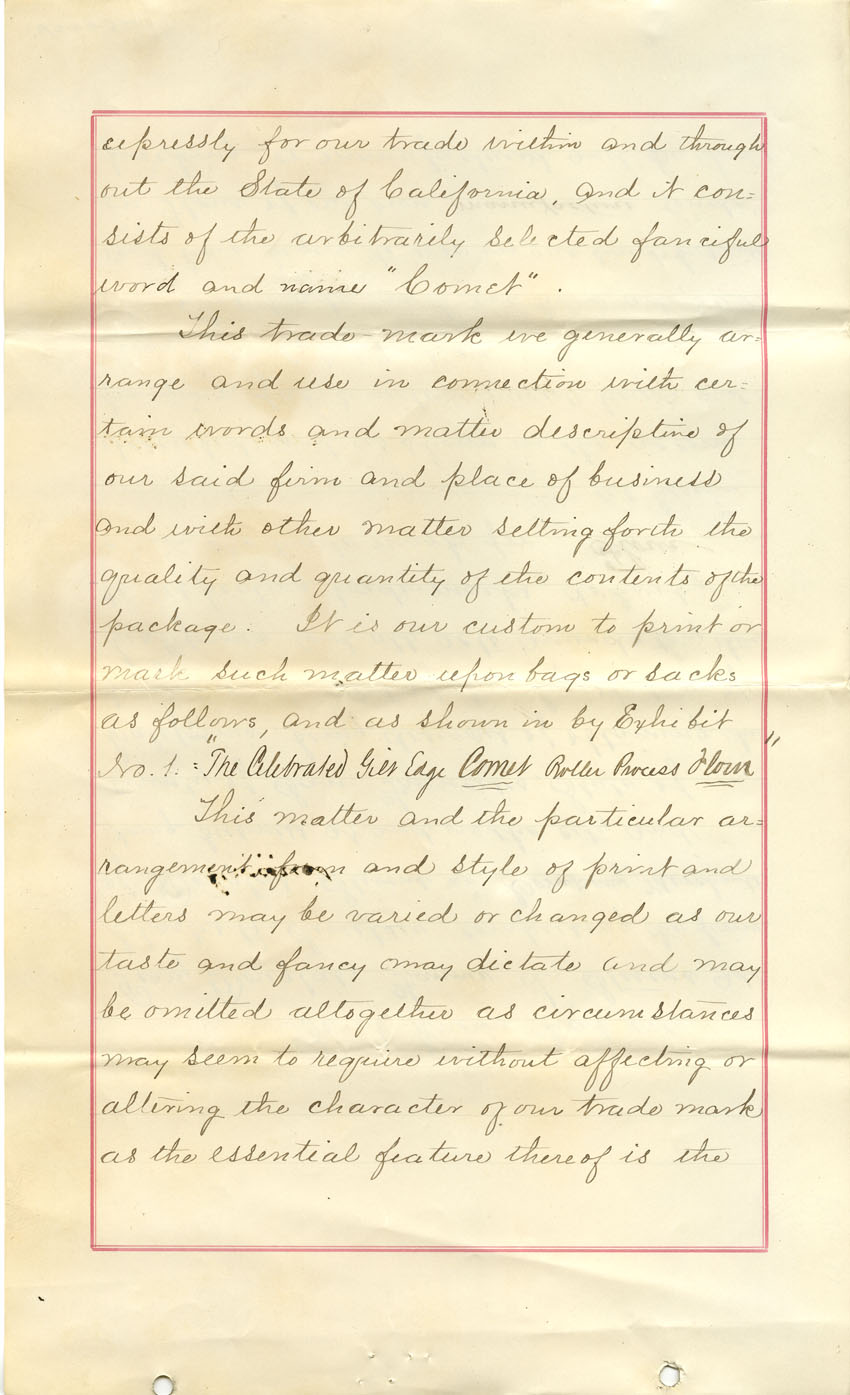 expressly for our trade within and through
out the State of California, and it con=
sists of the arbitrarily selected fanciful
word and name "Comet".
This trade-mark we generally ar=
range and use in connection with cer=
tain words and matter descriptive of
our said firm and place of business
and with other matter setting forth the
quality and quantity of the contents of the
package. It is our custom to print or
mark such matter upon bags or sacks
as follows, and as shown in by Exhibit
No. 1. : "The Celebrated Gilt Edge Comet Roller Process Flour"
This matter and the particular ar=
rangement form and style of print and
letters may be varied or changed as our
taste and fancy may dictate and may
be omitted altogether as circumstances
may seem to require without affecting or
altering the character of our trade mark
as the essential feature thereof is the